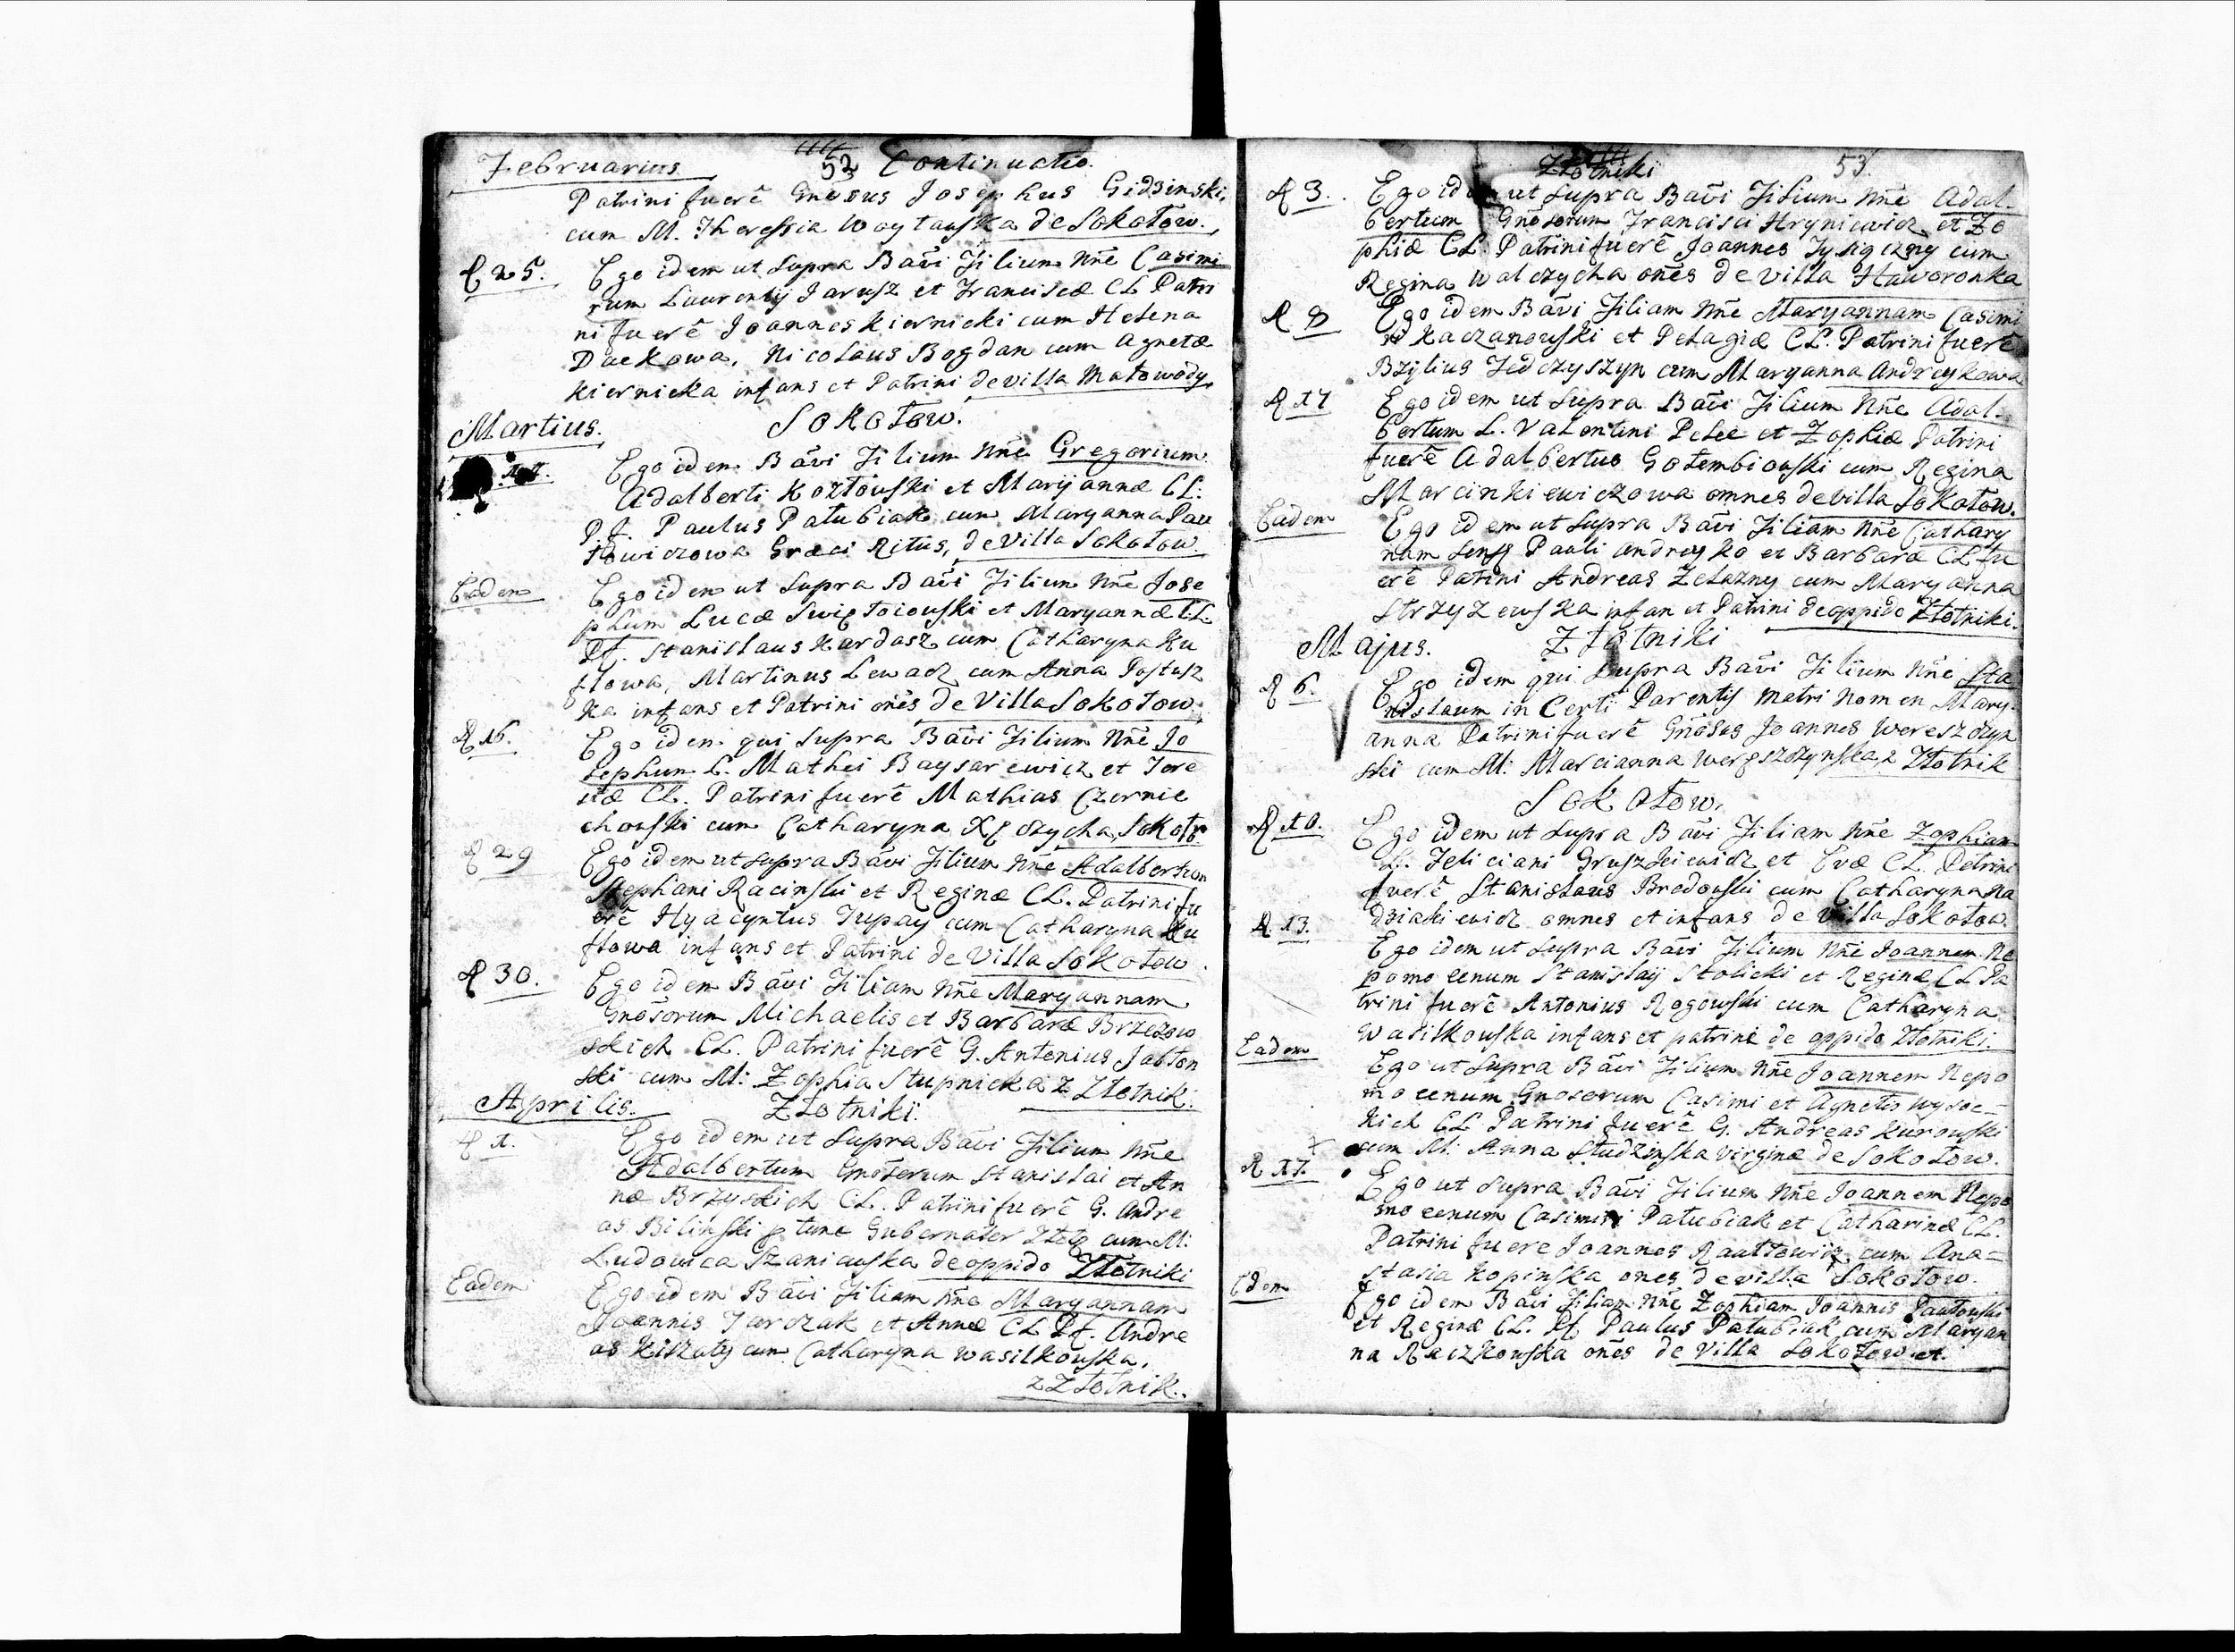 Februarius 52 Continuatio.
Patrini fuerē Gnosus Josephus Gidzinski,
cum M. Theressia Woytańska de Sokołow.
D 25. Ego idem ut supra Bāvi Filium Nñe Casimi
rum Laurentij Jarusz et Franciscæ CL Patri
ni fuerē Joannes Kiernicki cum Helena
Daekowa, Nicolaus Bogdan cum Agnetæ
Kiernicka infans et Patrini de villa Małowody
Sokołow.
Martius.
Ego idem Bāvi Filium Nñe Gregorium
Adalberti Kozłowski et Maryannæ CL.
P.f. Paulus Patubiak cum Maryanna Pau
łowiczowa Græci Ritus, de Villa Sokołow
Eadem Ego idem ut supra Bāvi Filium Nñe Jose
phum Lucæ Swiętoiowski et Maryannæ CL.
Pf. Stanislaus Kardasz cum Catharyna Ku
flowa, Martinus Lewacz cum Anna Postusz
ka infans et Patrini onēs de Villa Sokołow.
D 16. Ego idem qui supra Bāvi Filium Nñe Jo
sephum L. Mathei Baysarewicz et There
CL. Patrini fuerē Mathias Czernie
chowski cum Catharyna Sokołow
D 29 Ego idem ut supra Bāvi Filium Nñe Adalbertum
Stephani Racinski et Reginæ CL. Patrini fu
erē Hyacyntus Tupay cum Catharyna Ku
flowa infans et Patrini de Villa Sokołow.
D 30. Ego idem Bāvi Filiam Nñe Maryannam
Gnōsorum Michaelis et Barbaræ Brzezow
skich CL. Patrini fuerē G. Antonius Jabłon
ski cum M: Zophia Stupnicka z Złotnik.
Aprilis. Złotniki.
D 1. Ego idem ut supra Bāvi Filium Nñe
Adalbertum Gnōsorum Stanislai et An
næ Brzuskich CL. Patrini fuerē G. Andre
as Bilinski p tunc Gubernator cum M:
Ludowica Szaniawska de oppido Złotniki
Eadem Ego idem Bāvi Filiam Nñe Maryannam
Joannis Jarczak et Annæ CL Pf. Andre
as Kiszaty cum Catharyna Wasilkowska.
z Złotnik.
Złotniki 53.
D 3. Ego idem ut supra Bāvi Filium Nñe Adal-
bertum Gnosorum Francisci Hryniewicz et Zo
phiæ CL. Patrini fuerē Joannes cum
Regina Walczycha onēs de villa Haworonka
D 8 Ego idem Bāvi Filiam Nñe Maryannam Casimi
ri Kaczanowski et Pelagiæ CL. Patrini fuerē
Bzylius Fedczyszyn cum Maryanna Andreykowa
D 17 Ego idem ut supra Bāvi Filium Nñe Adal-
bertum L. Valentini Pelee et Zophiæ Patrini
fuerē Adalbertus Gołembiowski cum Regina
Marcinkiewiczowa omnes de villa Sokołow.
Eadem Ego idem ut supra Bāvi Filiam Nñe Cathary
nam Pauli Andreyko et Barbaræ CL fu
erē Patrini Andreas Zelazny cum Maryanna
Strzyzewska infan et Patrini de oppido Złotniki.
Majus. Złotniki
D 6. Ego idem qui supra Bāvi Filium Nñe Sta
nislaum in Certi Parentis Matri Nomen Mary-
anna Patrini fuerē Gnōsus Joannes Wereszczyn
ski cum M: Marcianna Wereszczynska z Złotnik
Sokołow.
D 10. Ego idem ut supra Bāvi Filiam Nñe Zophiam
L. Feliciani Gruszkiewicz et Evæ CL. Patrini
fuerē Stanislaus Bredowski cum Catharyna Na
dziakiewicz omnes et infans de Villa Sokołow.
D 13. Ego idem ut supra Bāvi Filium Nñe Joannem Ne
pomocenum Stanislaij Stolicki et Reginæ CL Pa
trini fuerē Antonius Rogowski cum Catharyna
Wasilkowska infans et patrini de oppido Złotniki.
Eadem Ego ut supra Bāvi Filium Nñe Joannem Nepo
mocenum Gnosorum Casimi et Agnetis Wysoc=
kich CL Patrini fuerē G. Andreas Kurowski
cum M: Anna Studzinska virginæ de Sokołow.
D 17. Ego ut supra Bāvi Filium Nñe Joannem Nepo
mocenum Casimiri Patubiak et Catharinæ CL.
Patrini fuere Joannes Rautowicz cum Ana=
stasia Kopinska ones de villa Sokołow.
Edem Ego idem Bāvi Filiam Nñe Zophiam Joannis Pautowski
et Reginæ CL. Pf. Paulus Patubiak cum Maryan
na Raczkowska onēs de Villa Sokołow et.